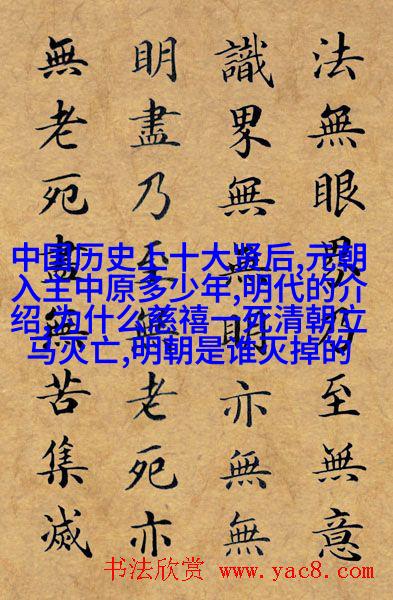 法無眼界乃至無意
識界無無明亦無無
明盡乃至無老死亦
無老死盡無苦集滅
中国历史上十大贤后,元朝
入主中原多少年,明代的介
绍,为什么慈禧一死清朝立
马灭亡,明朝是谁灭掉的
书法欣赏 www.yac8.com